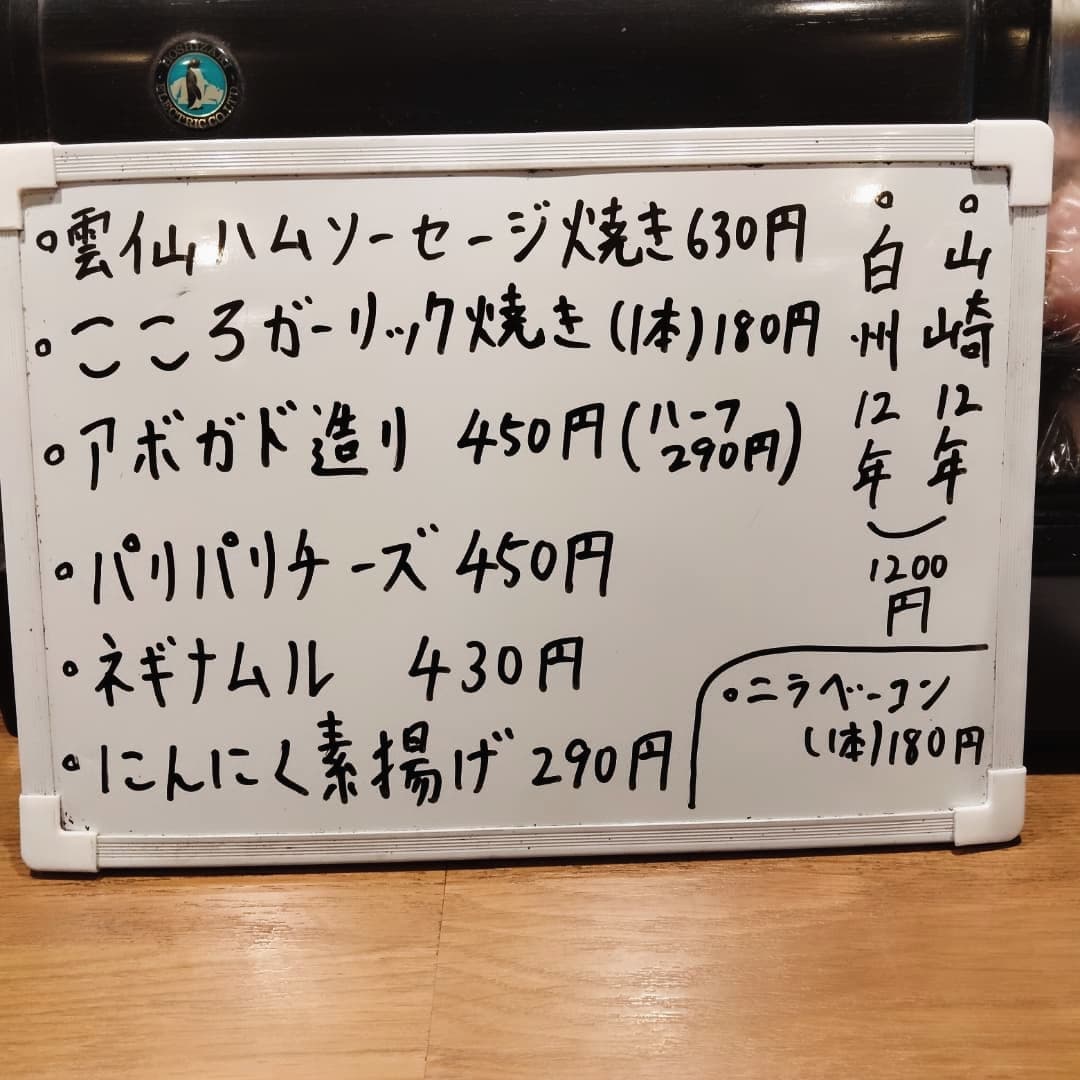 HOSHIZAKI
ELECTRIC CO.,LTD.
雲仙ハムソーセージ焼き630円
こころガーリック焼き(1本)180円
アボガド造り 450円(ハーフ
290円)
パリパリチーズ 450円
ネギナムル 430円
にんにく素揚げ 290円
山崎12年
白州12年
1200
円
ニラベーコン
(1本)180円